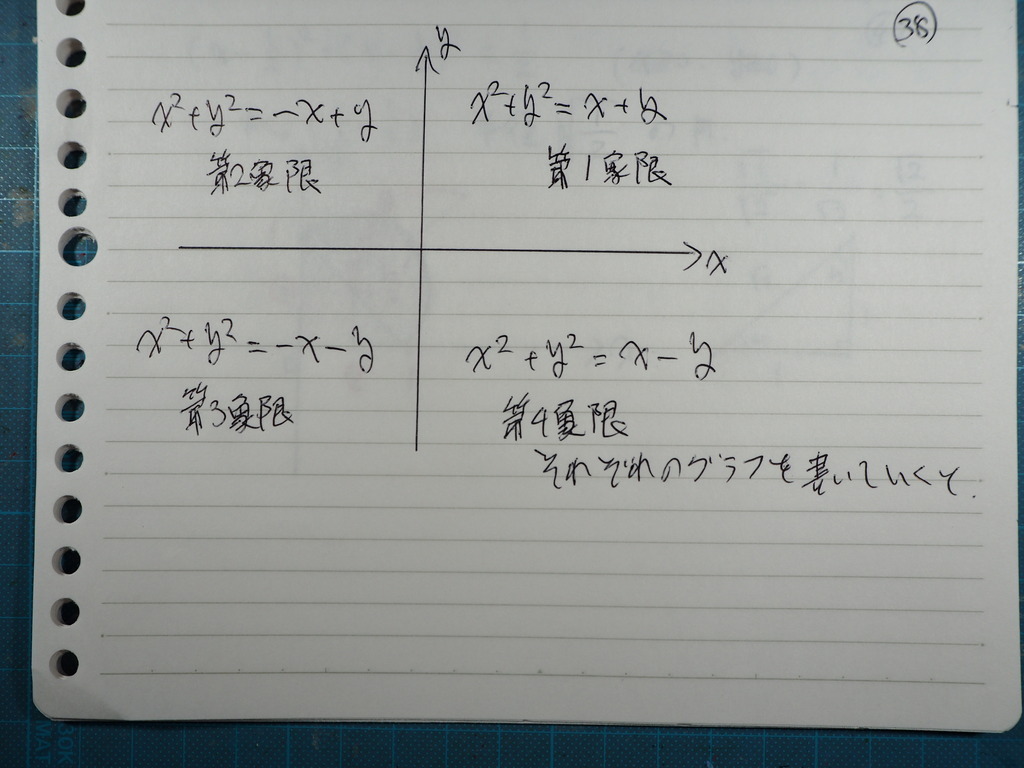 38
y
x²+y²=-x+y
x²+y²=x+y
第2象限
第1象限
x
x²+y²=-x-y
x²+y²=x-y
第3象限
第4象限
それぞれのグラフを書いていくと.